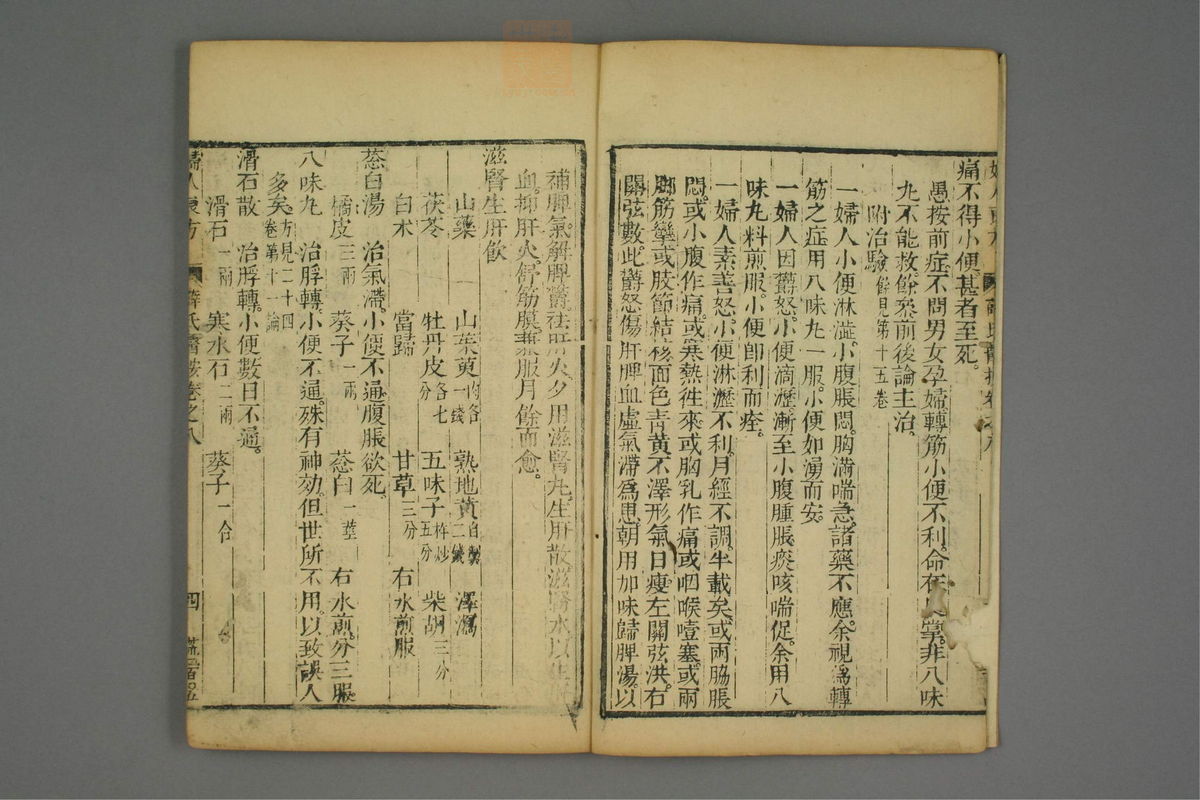 痛不得小便甚者至死。
愚按前症不問男女孕婦轉筋小便不利。命在掌。非八味
丸不能救餘叅前後論主治。
附治驗餘見第十五卷
一婦人小便淋澁。小腹脹悶。胸滿喘急。諸藥不應。余視爲轉
筋之症用八味丸一服。小便如湧而安。
一婦人因欝怒。小便滴瀝。漸至小腹腫脹痰咳喘促。余用八
味丸料煎服。小便即利而痊。
一婦人素善怒。小便淋瀝不利。月經不調。半載矣。或兩脇脹
悶。或小腹作痛。或寒熱徃來或胸乳作痛或咽喉噎塞。或兩
脚筋攣或肢節結核面色青黃不澤形氣日瘦左關弦洪。右
關弦數。此欝怒傷肝脾血虛氣滯爲患。朝用加味歸脾湯以
補脾氣。解脾欝。祛肝火夕用滋腎丸。生肝散滋腎水以生肝
血。抑肝火。舒筋膜兼服月餘而愈。
滋腎生肝飲
山藥 山茱萸的各一錢 熟地黃自製二錢 澤瀉
茯苓 牡丹皮各七分 五味子杵炒五分 柴胡三分
白朮 當歸 甘草三分 右水煎服
葱白湯 治氣滯。小便不通。腹脹欲死。
橘皮三兩 葵子一兩 葱白一莖 右水煎。分三服。
八味丸 治脬轉。小便不通。殊有神効。但世所不用。以致誤人
多矣方見二十四卷第十一論
滑石散 治脬轉。小便數日不通。
滑石一兩 寒水石二兩 葵子一合
婦人良方 薛氏醫按卷之八 四